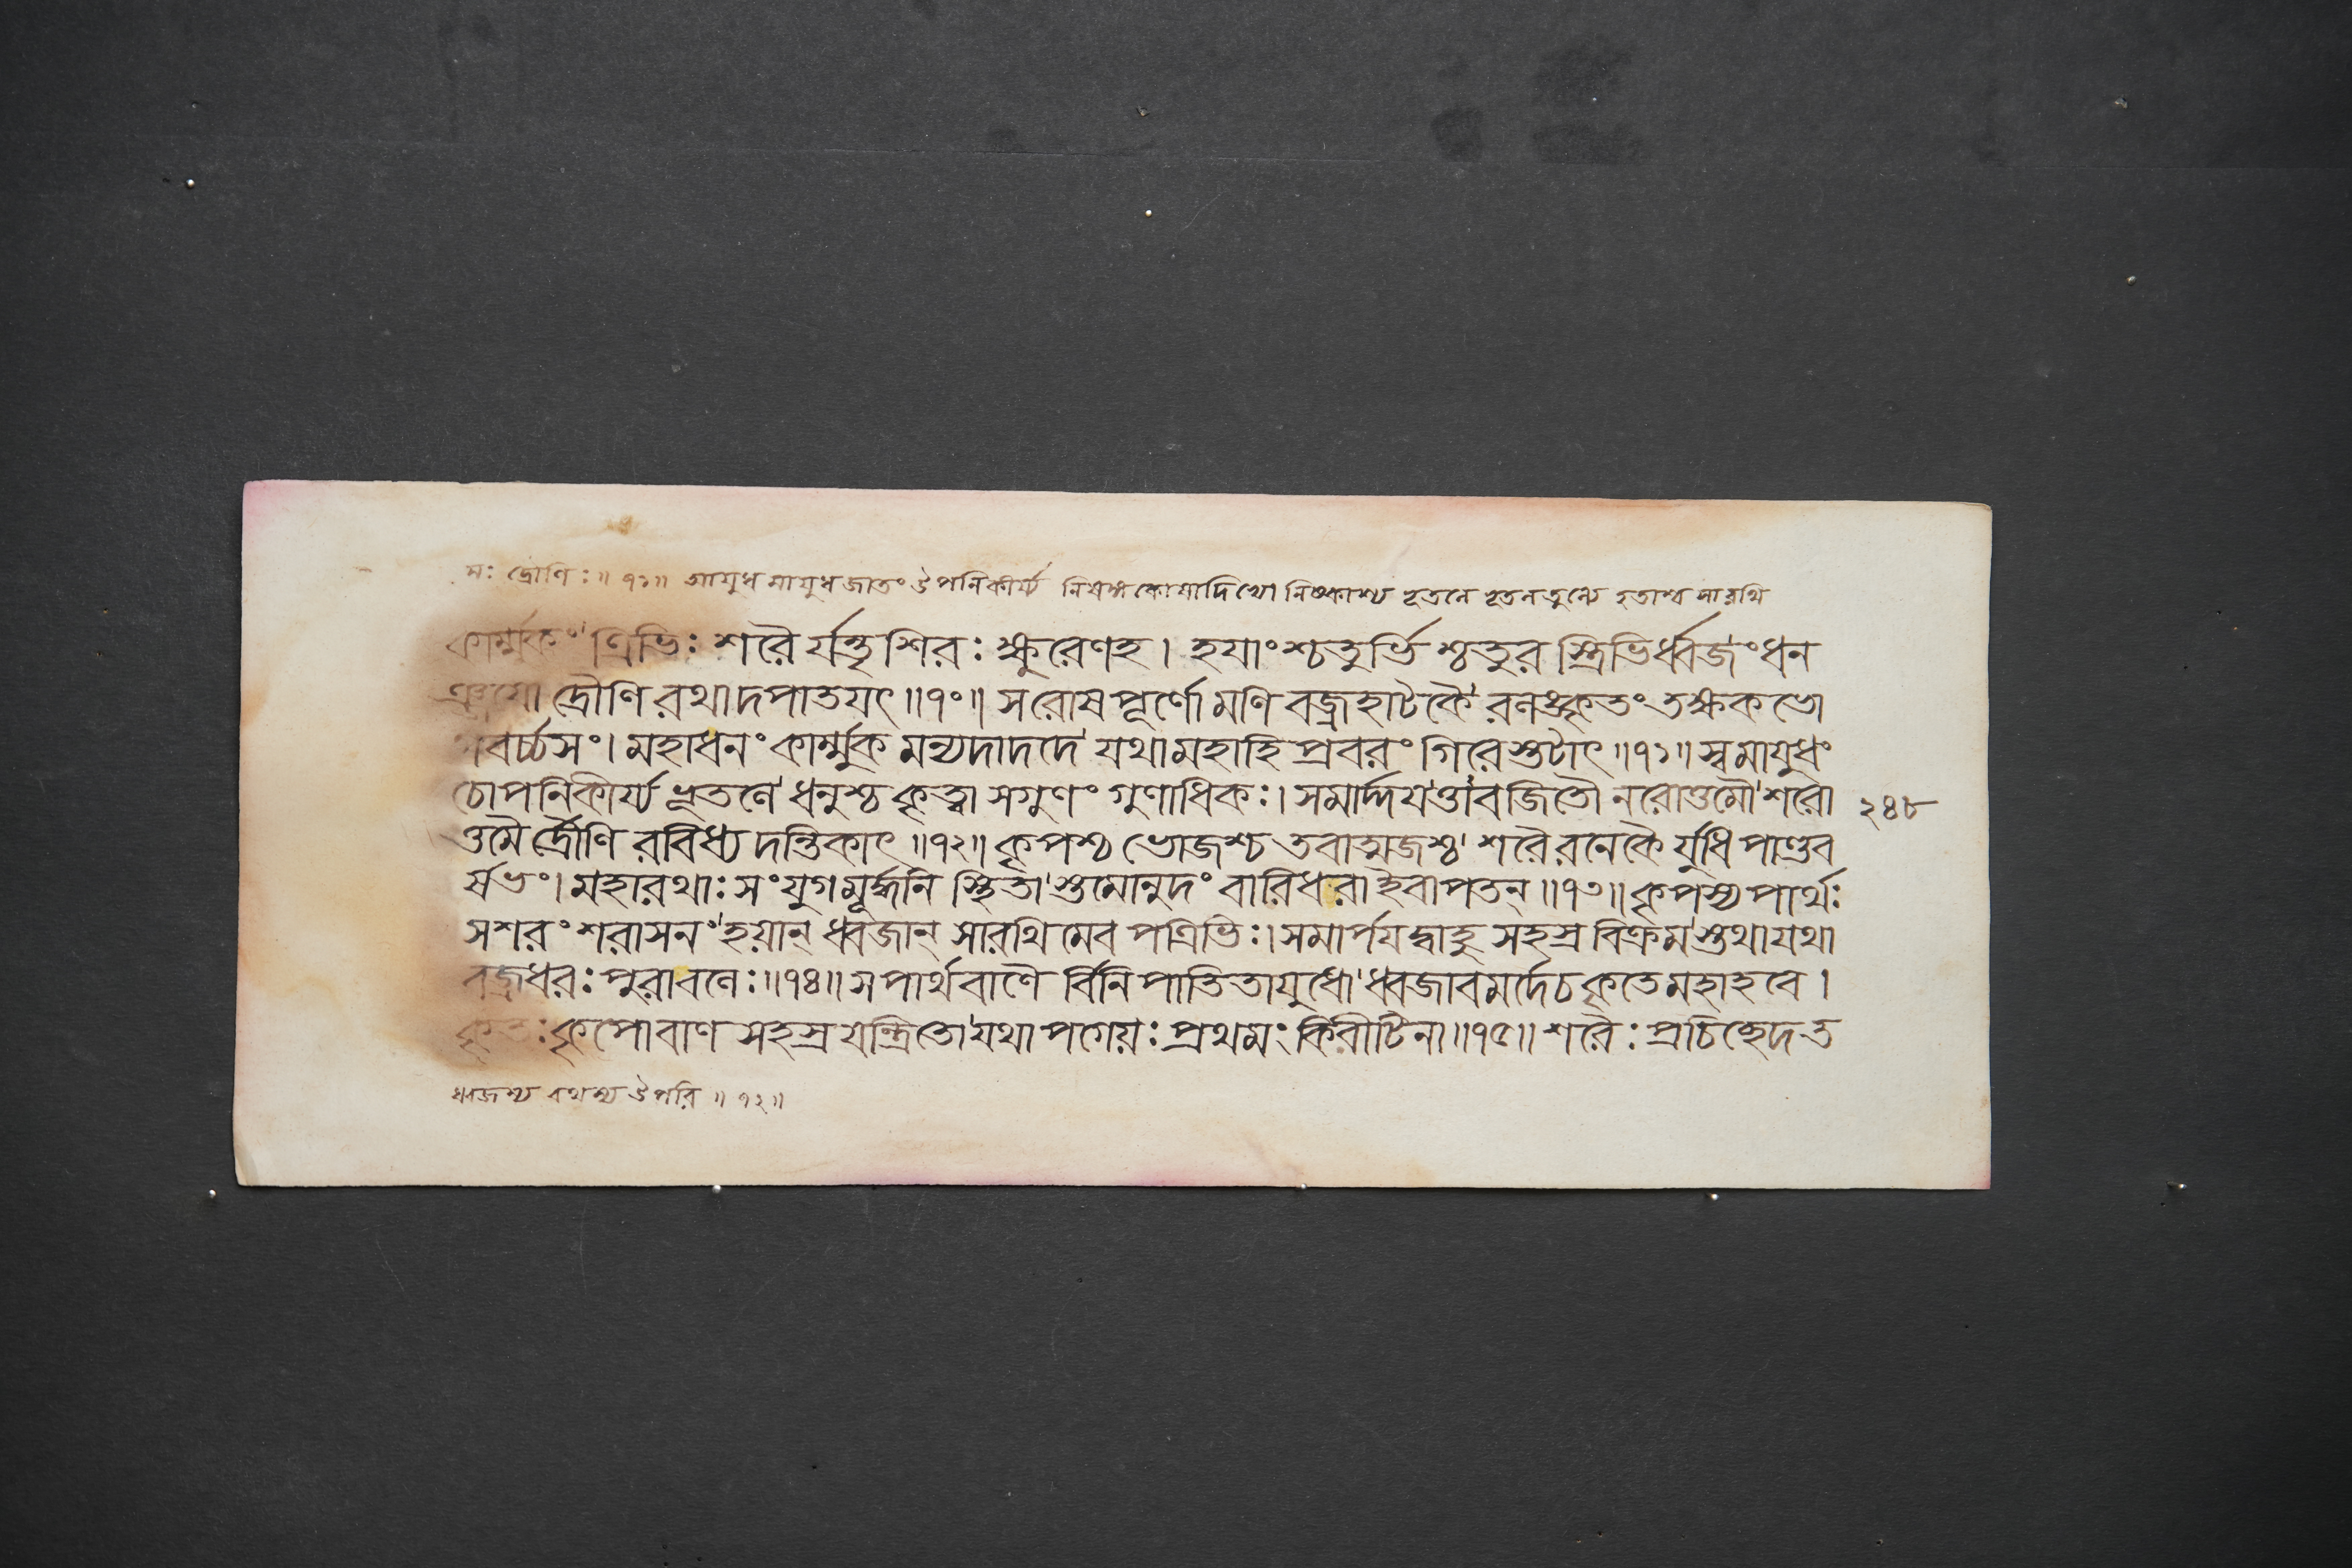 সঃ দ্রৌণিঃ॥১১॥ আযুধমাযুধজাতং উপনিকীর্য্য নিষঙ্গকোষাদিভ্যো নিষ্কাশ্য ভূতলে ভূতনতুল্যে হতাশ্ব সারথি
কার্ম্মুকং ত্রিভিঃ শরৈ র্যন্তৃশিরঃ ক্ষুরেণহ। হযাংশ্চতুর্ভি শ্চতুর স্ত্রিভির্ধ্বজংধন
ঞ্জযো দ্রৌণি রথাদপাতযৎ॥১০॥ সরোষপূর্ণো মণি বজ্রহাটকৈ রলঙ্কৃতং তক্ষকভো
গবর্চ্চসং। মহাধনং কার্ম্মুক মন্যদাদদে যথামহাহিপ্রবরং গিরেস্তটাৎ॥১১॥ স্বমাযুধং
চোপনিকীর্য্য ভূতলে ধনুশ্চ কৃত্বা সগুণং গুণাধিকঃ। সমার্দ্দযত্তাবজিতৌ নরোত্তমৌ শরো
ত্তমৈ র্দ্রৌণি রবিধ্য দন্তিকাৎ॥১২॥ কৃপশ্চ ভোজশ্চ তবাত্মজশ্চ শরৈরনেকৈ র্যুধি পাণ্ডব
র্ষভং। মহারথাঃ সংযুগমূর্দ্ধনি স্থিতা স্তমোনুদং বারিধরা ইবাপতন্॥১৩॥ কৃপস্য পার্থঃ
সশরং শরাসনং হয়ান্ ধ্বজান্ সারথিমেব পত্রিভিঃ। সমার্পযদ্বাহু সহস্রবিক্রম স্তথাযথা
বজ্রধরঃ পুরাবলেঃ॥১৪॥ সপার্থবাণৈ র্বিনিপাতিতাযুধো ধ্বজাবমর্দেচ কৃতেমহাহবে।
কৃতঃ কৃপোবাণ সহস্রযন্ত্রিতো যথাপগেয়ঃ প্রথমং কিরীটিনা॥১৫॥ শরৈঃ প্রচিচ্ছেদত
২৪৮
ধ্বজস্য রথস্য উপরি॥১২॥